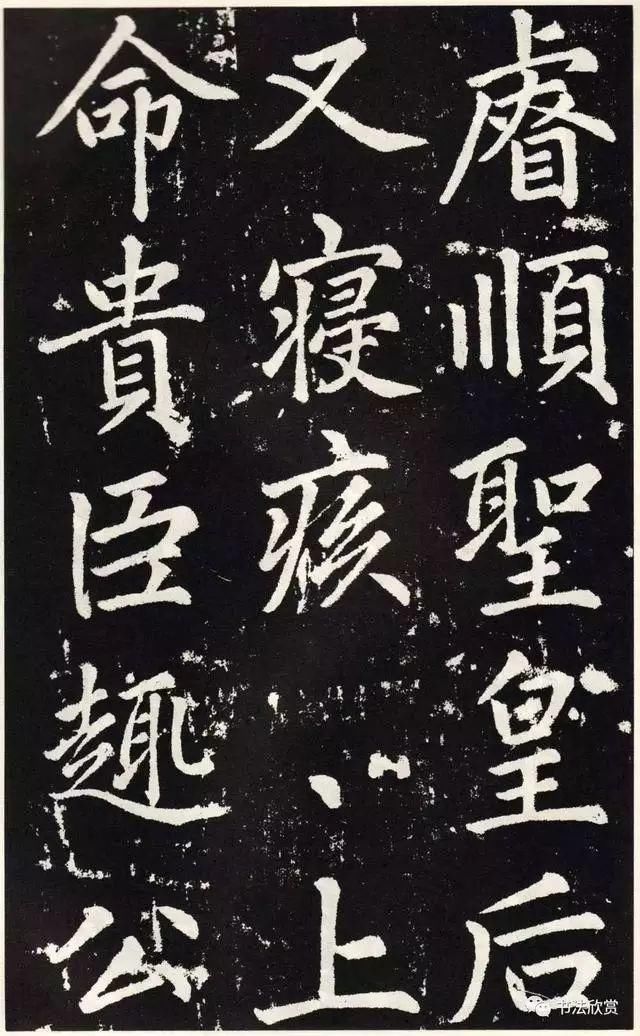 睿順聖皇后
又寢痎、上
命貴臣趣公
书法欣赏